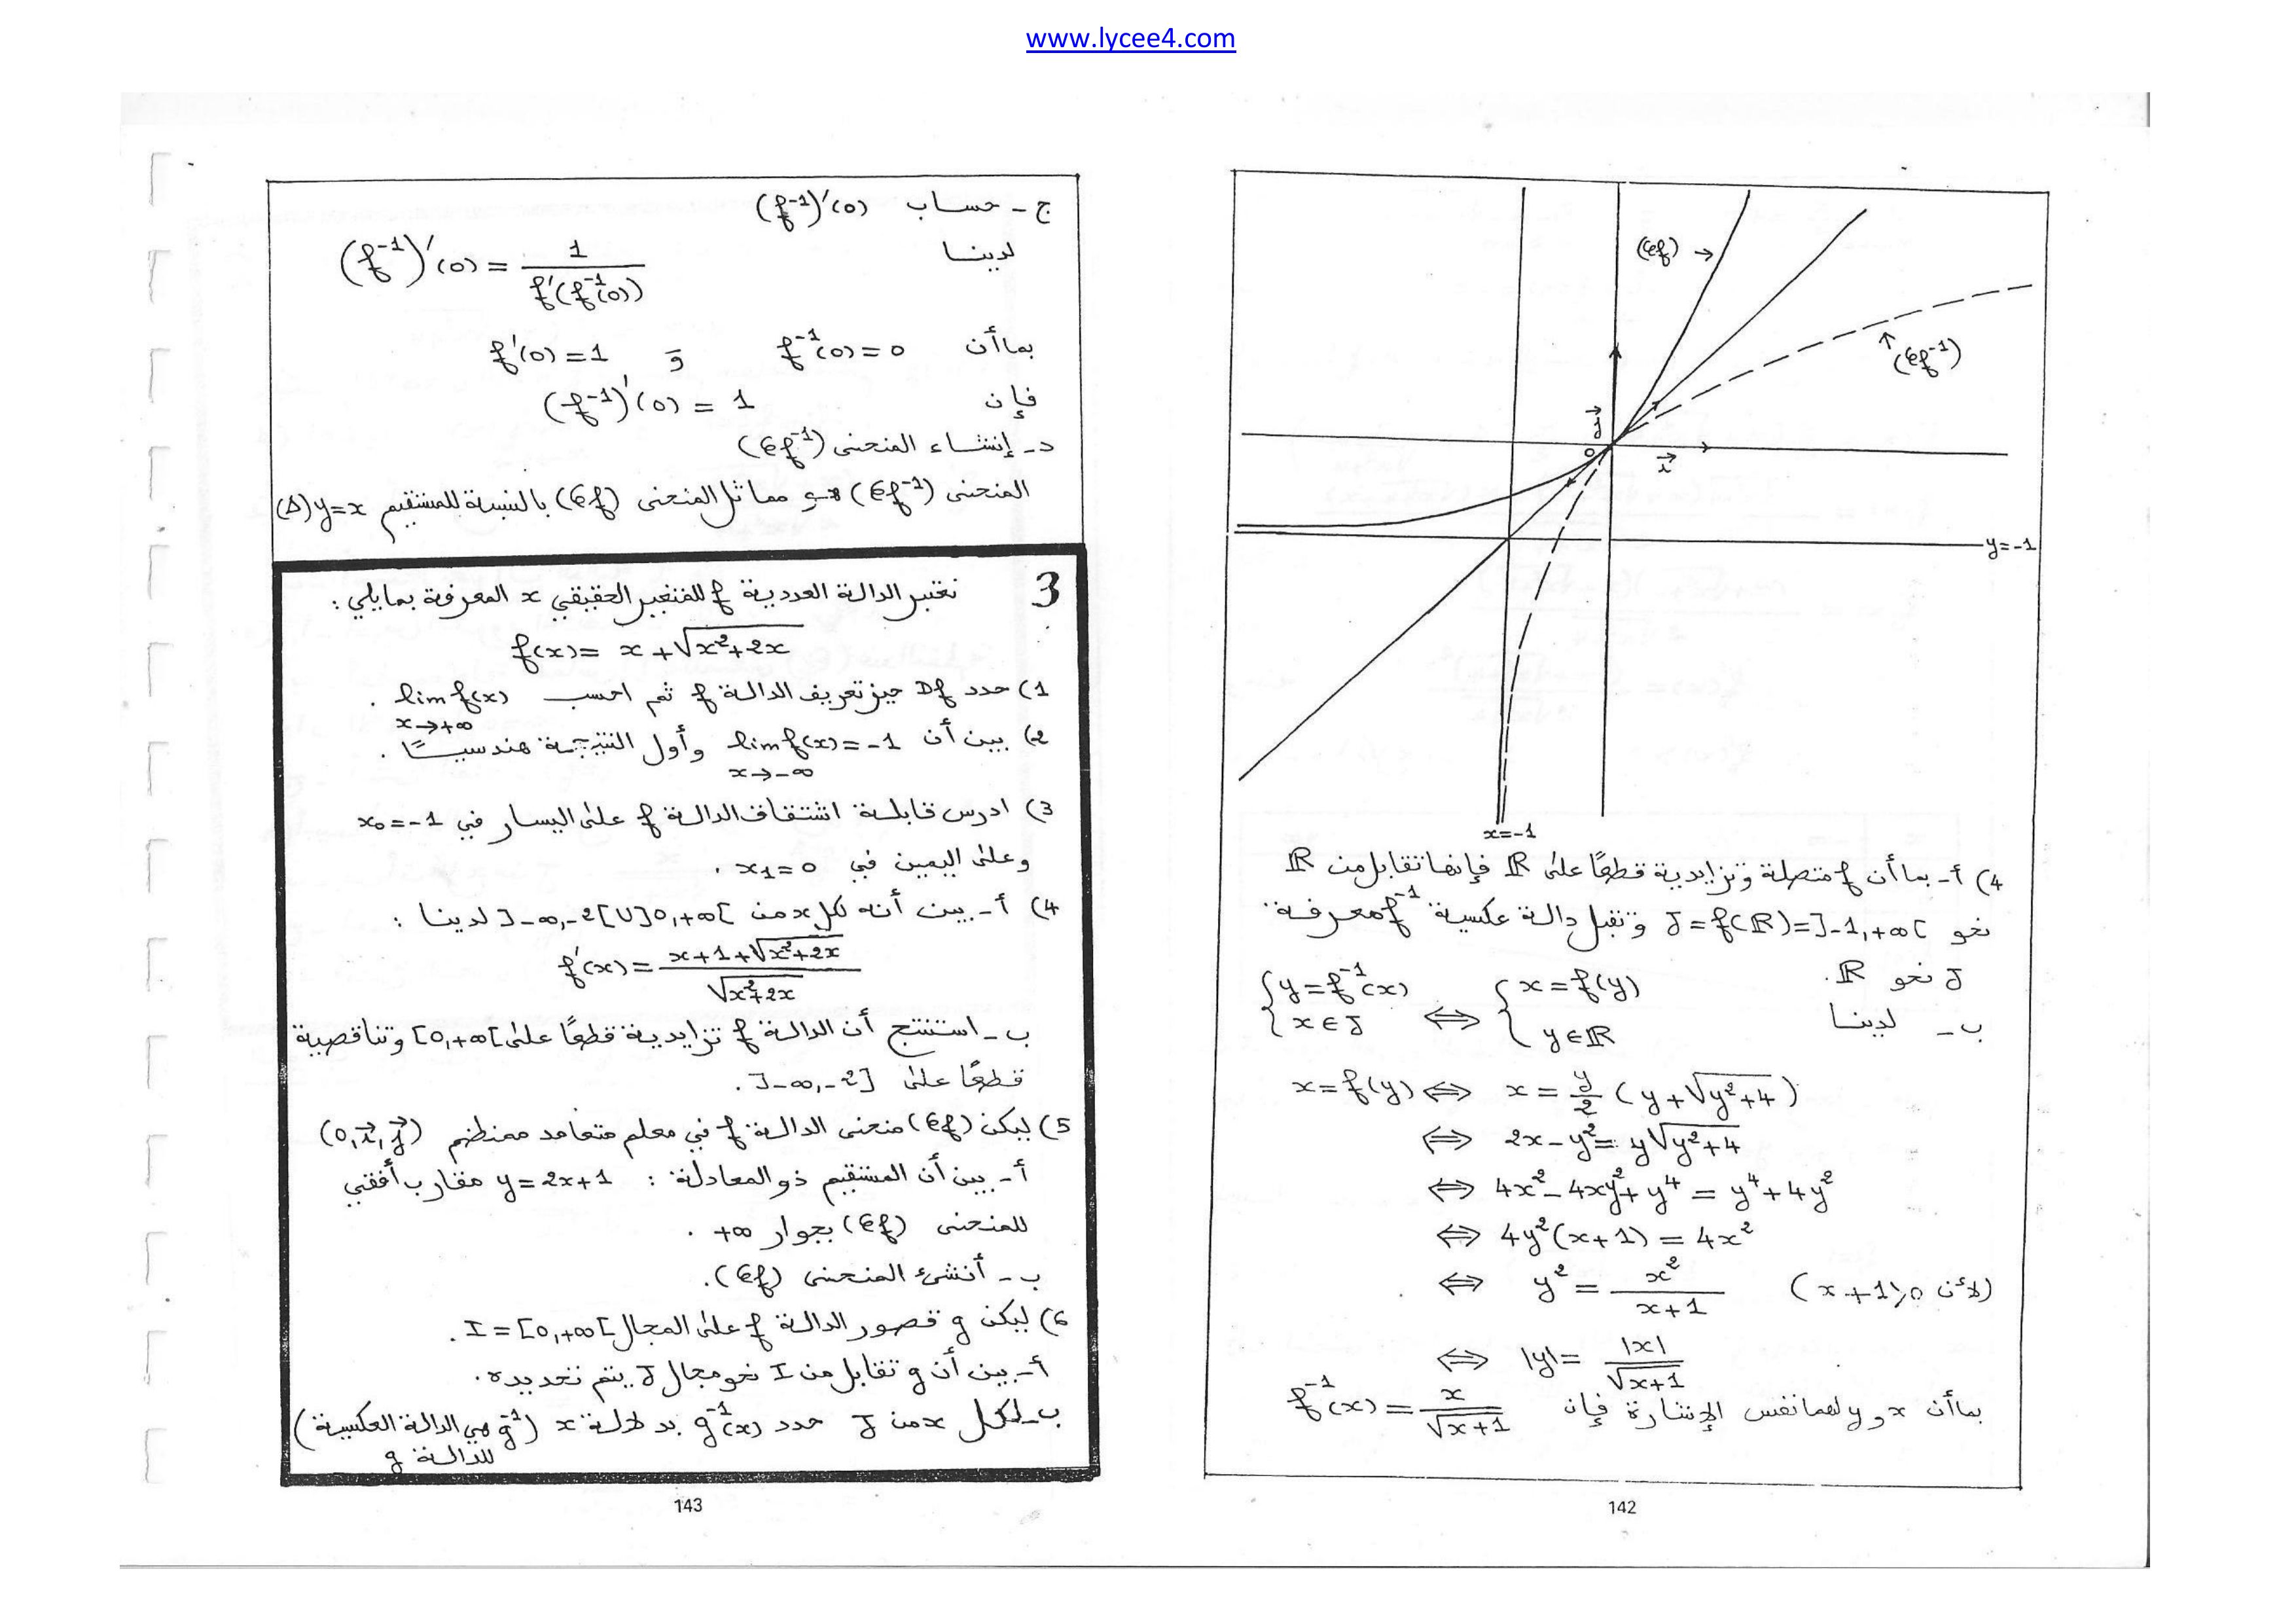 www.lycee4.com
(𝒞f) →
↑ (𝒞f⁻¹)
j⃗
o
i⃗
y=-1
x=-1
4) أ- بما أن f متصلة وتزايدية قطعًا على ℝ فإنها تقابل من ℝ
نحو J = f(ℝ) = ]-1,+∞[ وتقبل دالة عكسية f⁻¹ معرفة
J نحو ℝ.
ب- لدينا { y = f⁻¹(x) ; x ∈ J ⟺ { x = f(y) ; y ∈ ℝ
x = f(y) ⟺ x = y/2 (y + √(y²+4))
⟺ 2x - y² = y√(y²+4)
⟺ 4x² - 4xy² + y⁴ = y⁴ + 4y²
⟺ 4y²(x+1) = 4x²
⟺ y² = x²/(x+1) (لأن x+1>0)
⟺ |y| = |x|/√(x+1)
بما أن x و y لهما نفس الإشارة فإن f⁻¹(x) = x/√(x+1)
142
ج- حساب (f⁻¹)'(0)
لدينا (f⁻¹)'(0) = 1/f'(f⁻¹(0))
بما أن f⁻¹(0) = 0 و f'(0) = 1
فإن (f⁻¹)'(0) = 1
د- إنشاء المنحنى (𝒞f⁻¹)
المنحنى (𝒞f⁻¹) هو مماثل المنحنى (𝒞f) بالنسبة للمستقيم (Δ) y=x
3 نعتبر الدالة العددية f للمتغير الحقيقي x المعرفة بمايلي :
f(x) = x + √(x²+2x)
1) حدد Df حيز تعريف الدالة f ثم احسب lim f(x) x→+∞ .
2) بين أن lim f(x) = -1 x→-∞ وأول النتيجة هندسيًا .
3) ادرس قابلية اشتقاق الدالة f على اليسار في x₀=-1
وعلى اليمين في x₁=0 .
4) أ- بين أنه لكل x من ]-∞,-2[∪]0,+∞[ لدينا :
f'(x) = (x+1+√(x²+2x))/√(x²+2x)
ب- استنتج أن الدالة f تزايدية قطعًا على [0,+∞[ وتناقصية
قطعًا على ]-∞,-2] .
5) ليكن (𝒞f) منحنى الدالة f في معلم متعامد ممنظم (0,i⃗,j⃗)
أ- بين أن المستقيم ذو المعادلة : y=2x+1 مقارب أفقي
للمنحنى (𝒞f) بجوار +∞ .
ب- أنشئ المنحنى (𝒞f).
6) ليكن g قصور الدالة f على المجال I=[0,+∞[ .
أ- بين أن g تقابل من I نحو مجال J يتم تحديده.
ب- لكل x من J حدد g⁻¹(x) بدلالة x (g⁻¹ هي الدالة العكسية
للدالة g)
143